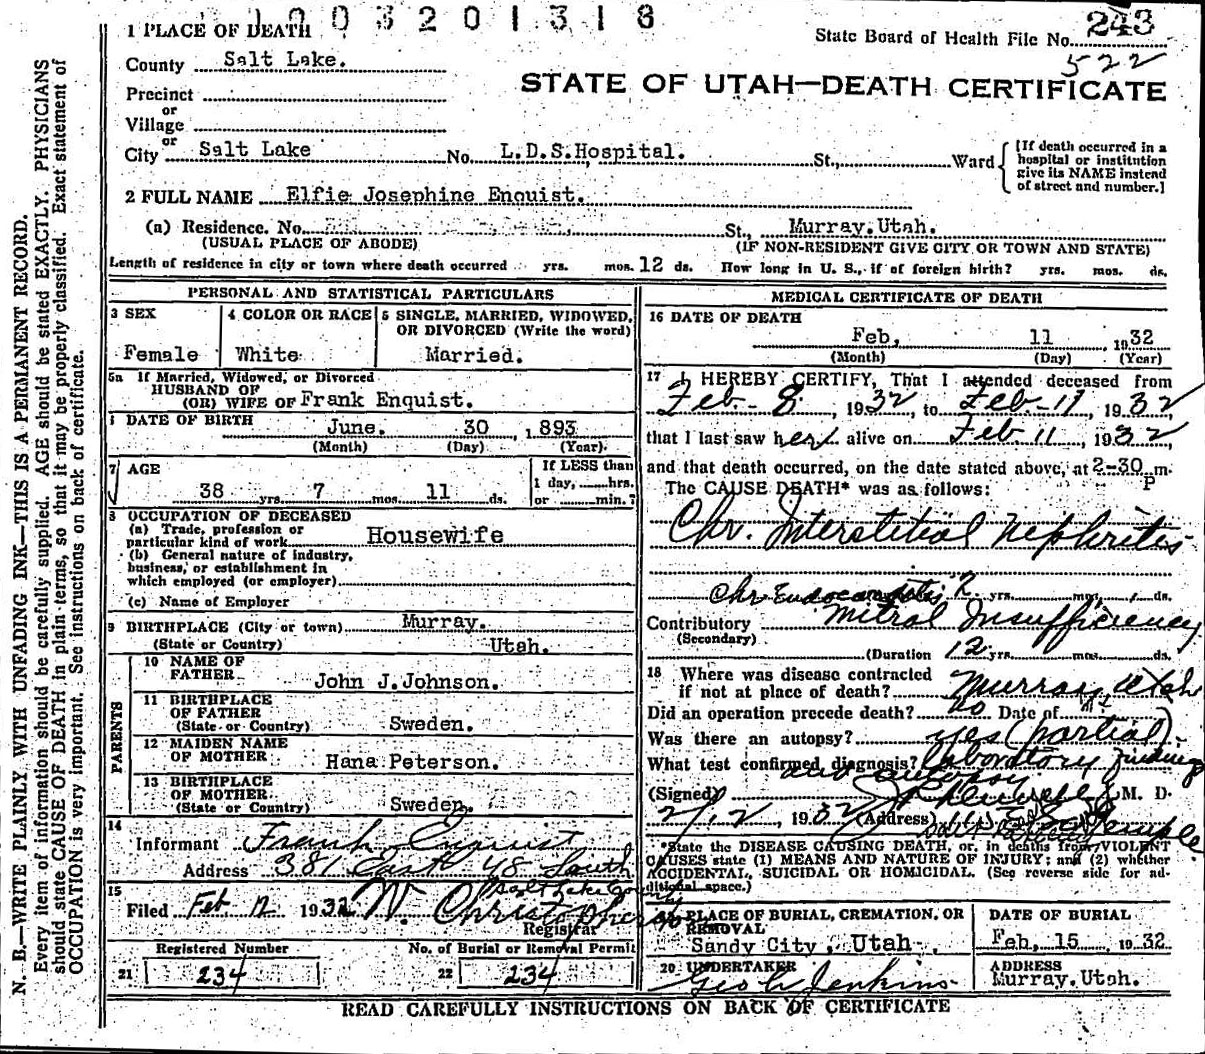 1003201318
243
State Board of Health File No.
522
STATE OF UTAH—DEATH CERTIFICATE
1 PLACE OF DEATH
County Salt Lake.
Precinct
or
Village
or
City Salt Lake No. L.D.S.Hospital. St., Ward
[If death occurred in a hospital or institution give its NAME instead of street and number.]
2 FULL NAME Elfie Josephine Enquist.
(a) Residence. No. St., Murray.Utah.
(USUAL PLACE OF ABODE) (IF NON-RESIDENT GIVE CITY OR TOWN AND STATE)
Length of residence in city or town where death occurred yrs. mos. 12 ds. How long in U. S., if of foreign birth? yrs. mos. ds.
PERSONAL AND STATISTICAL PARTICULARS
3 SEX
Female
4 COLOR OR RACE
White
5 SINGLE, MARRIED, WIDOWED, OR DIVORCED (Write the word)
Married.
5a If Married, Widowed, or Divorced
HUSBAND OF
(OR) WIFE OF Frank Enquist.
DATE OF BIRTH June. 30 1893
(Month) (Day) (Year)
7 AGE
38 yrs. 7 mos. 11 ds.
If LESS than
1 day, hrs.
or min.?
8 OCCUPATION OF DECEASED
(a) Trade, profession or
particular kind of work Housewife
(b) General nature of industry,
business, or establishment in
which employed (or employer)
(c) Name of Employer
9 BIRTHPLACE (City or town) Murray.
(State or Country) Utah.
PARENTS
10 NAME OF
FATHER John J.Johnson.
11 BIRTHPLACE
OF FATHER
(State or Country) Sweden.
12 MAIDEN NAME
OF MOTHER Hana Peterson.
13 BIRTHPLACE
OF MOTHER
(State or Country) Sweden.
14
Informant Frank Enquist
Address 381 East 48 South
Salt Lake County
15
Filed Feb 12 1932 N. Christopherson
Registrar
Registered Number No. of Burial or Removal Permit
21 234 22 234
MEDICAL CERTIFICATE OF DEATH
16 DATE OF DEATH
Feb, 11 1932
(Month) (Day) (Year)
17 I HEREBY CERTIFY, That I attended deceased from
Feb - 8, 1932, to Feb - 11, 1932,
that I last saw her alive on Feb. 11, 1932,
and that death occurred, on the date stated above, at 2-30 P m.
The CAUSE DEATH* was as follows:
Chr. Interstitial Nephritis
Chr Endocarditis 2 yrs. mos. ds.
Contributory Mitral Insufficiency
(Secondary)
(Duration 12 yrs. mos. ds.
18 Where was disease contracted
if not at place of death? Murray, Utah
Did an operation precede death? no Date of
Was there an autopsy? yes (partial)
What test confirmed diagnosis? laboratory findings
and autopsy
(Signed) M. D.
2/12, 1932 (Address) Temple
*State the DISEASE CAUSING DEATH, or, in deaths from VIOLENT
CAUSES state (1) MEANS AND NATURE OF INJURY; and (2) whether
ACCIDENTAL, SUICIDAL OR HOMICIDAL. (See reverse side for ad-
ditional space.)
PLACE OF BURIAL, CREMATION, OR
REMOVAL
Sandy City, Utah.
DATE OF BURIAL
Feb, 15 1932
20 UNDERTAKER
Geo W Jenkins
ADDRESS
Murray.Utah.
READ CAREFULLY INSTRUCTIONS ON BACK OF CERTIFICATE
N. B.—WRITE PLAINLY WITH UNFADING INK—THIS IS A PERMANENT RECORD.
Every item of information should be carefully supplied. AGE should be stated EXACTLY. PHYSICIANS
should state CAUSE OF DEATH in plain terms, so that it may be properly classified. Exact statement of
OCCUPATION is very important. See instructions on back of certificate.